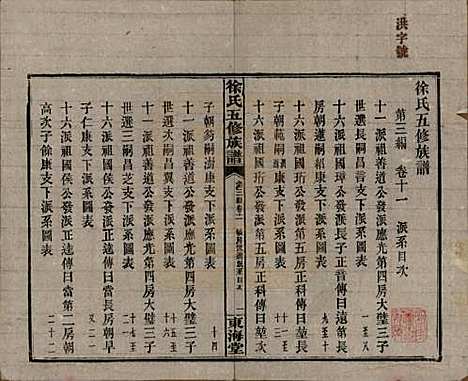 洪字號
徐氏五修族譜
第三編 卷十一 派系目次
十一派祖善道公發派應光第四房大璧三子
世選長嗣昌晉支下派系圖表
一至八
十六派祖國珩公發派長子正音傳曰遠第長
房朝進嗣紹康支下派系圖表
九至十
十六派祖國珩公發派第五房正科傳曰堃次
子朝範嗣支下派系圖表
十一至
十六派祖國珩公發派第五房正科傳曰堃次
徐氏五修族譜
東海堂
子朝鈞嗣澍康支下派系圖表
十四
十一派祖善道公發派應光第四房大璧三子
世選次嗣昌巽支下派系圖表
十五至
十一派祖善道公發派應光第四房大璧三子
世選三嗣昌芝支下派系圖表
十七至
十六派祖國侯公發派正遠傳曰當長房朝早
子仁康支下派系圖表
十六派祖國侯公發派正遠傳曰當第二房朝
高次子餘康支下派系圖表
二十二